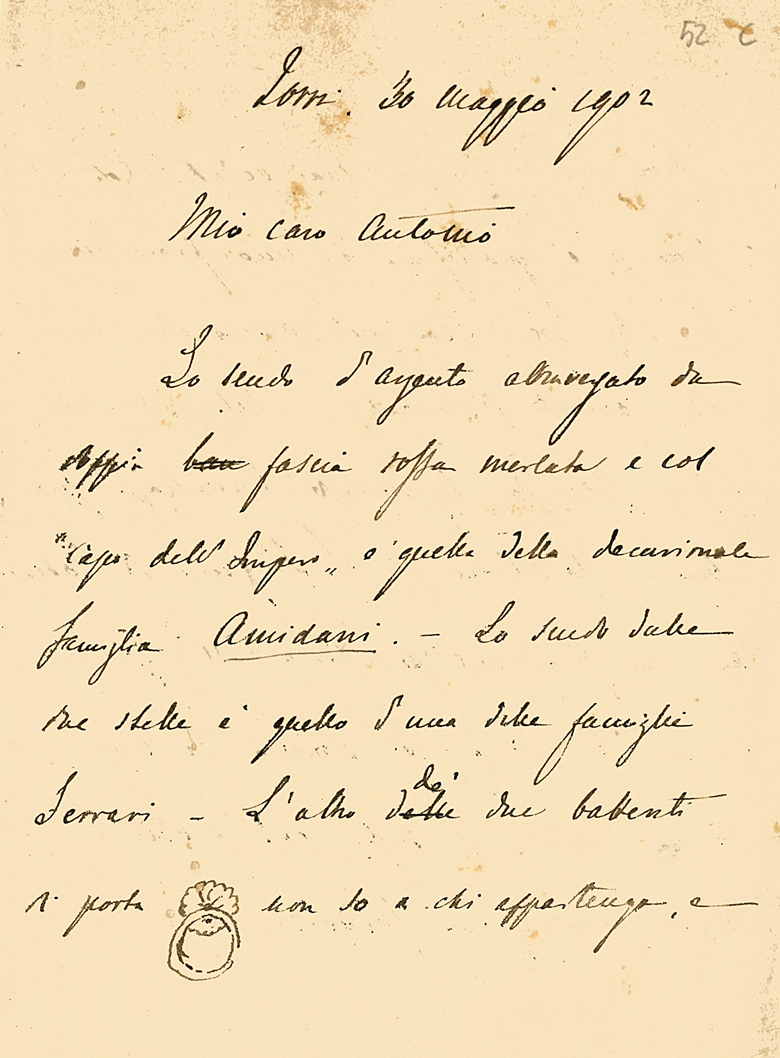 52 C
Torri. 30 maggio 1902
Mio caro Antonio
Lo scudo d'argento attraversato da
doppia ban fascia rossa merlata e col
"Capo dell'Impero„ è quella della decurionale
famiglia Amidani. - Lo scudo dalle
due stelle è quello d'una delle famiglie
Ferrari - L'altro delle de' due battenti
di porta non so a chi appartenga, e